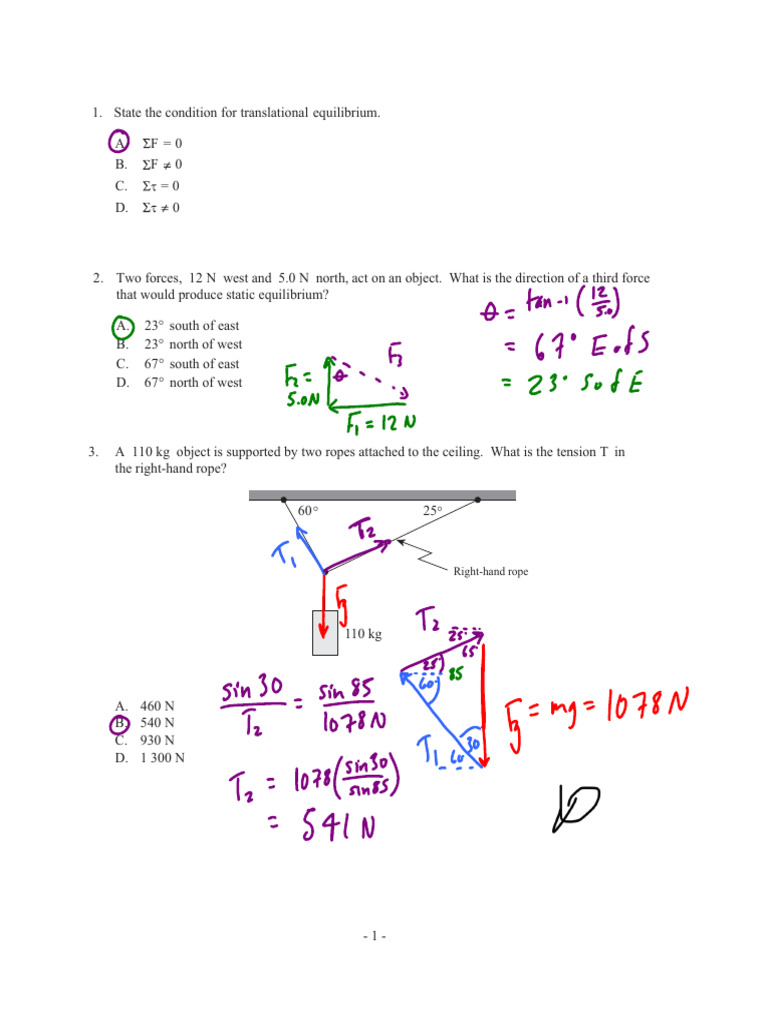 1. State the condition for translational equilibrium.
A. ΣF = 0
B. ΣF ≠ 0
C. Στ = 0
D. Στ ≠ 0
2. Two forces, 12 N west and 5.0 N north, act on an object. What is the direction of a third force
that would produce static equilibrium?
A. 23° south of east
B. 23° north of west
C. 67° south of east
D. 67° north of west
θ = tan-1 (12/5.0)
= 67° E of S
= 23° S of E
F2 =
5.0N
θ
F3
F1 = 12 N
3. A 110 kg object is supported by two ropes attached to the ceiling. What is the tension T in
the right-hand rope?
60° 25°
T1
T2
Right-hand rope
Fg
110 kg
T2
25°
65
25
85
60
T1
30
60
Fg = mg = 1078 N
A. 460 N
B. 540 N
C. 930 N
D. 1 300 N
sin 30 / T2 = sin 85 / 1078 N
T2 = 1078 (sin30/sin85)
= 541 N
- 1 -